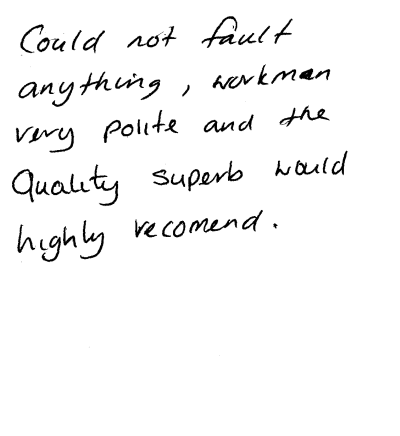 Could not fault
anything, workman
very polite and the
Quality superb would
highly recomend.